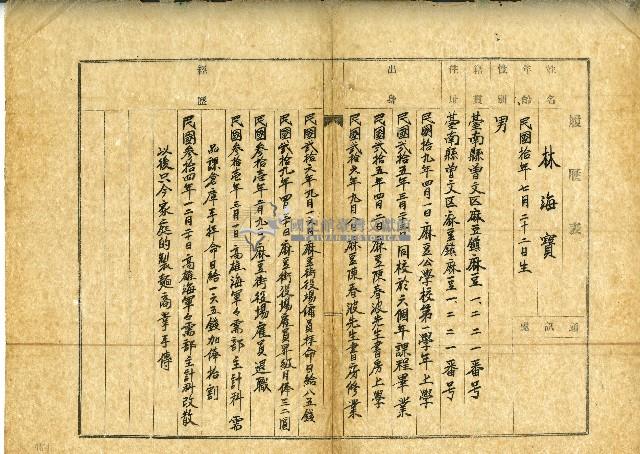 履歷表
姓名 林海寶
通訊處
年齡 民國拾年七月二十二日生
性別 男
籍貫 臺南縣曽文区麻豆鎮麻豆一、二二一番号
住址 臺南縣曽文区麻豆鎮麻豆一、二二一番号
出身
民國拾九年四月一日麻豆公學校第一學年上學
民國貳拾五年三月二十日同校於六個年課程畢業
民國貳拾五年四月二日麻豆陳春波先生書房上學
民國貳拾六年九月一日麻豆陳春波先生書房修業
經歷
民國貳拾六年九月一六日麻豆街役場傭員採命日給八五錢
民國貳拾九年四月三十日麻豆街役場雇員昇級月俸三二圓
民國參拾壹年二月九日麻豆街役場雇員退職
民國參拾壹年三月一日高雄海軍々需部主計科 需
品課倉庫手拝命日給一六五錢加俸拾割
民國參拾四年一二月三十日高雄海軍々需部主計科改散
以後只今家庭的製麵商業手傳
國史館臺灣文獻館